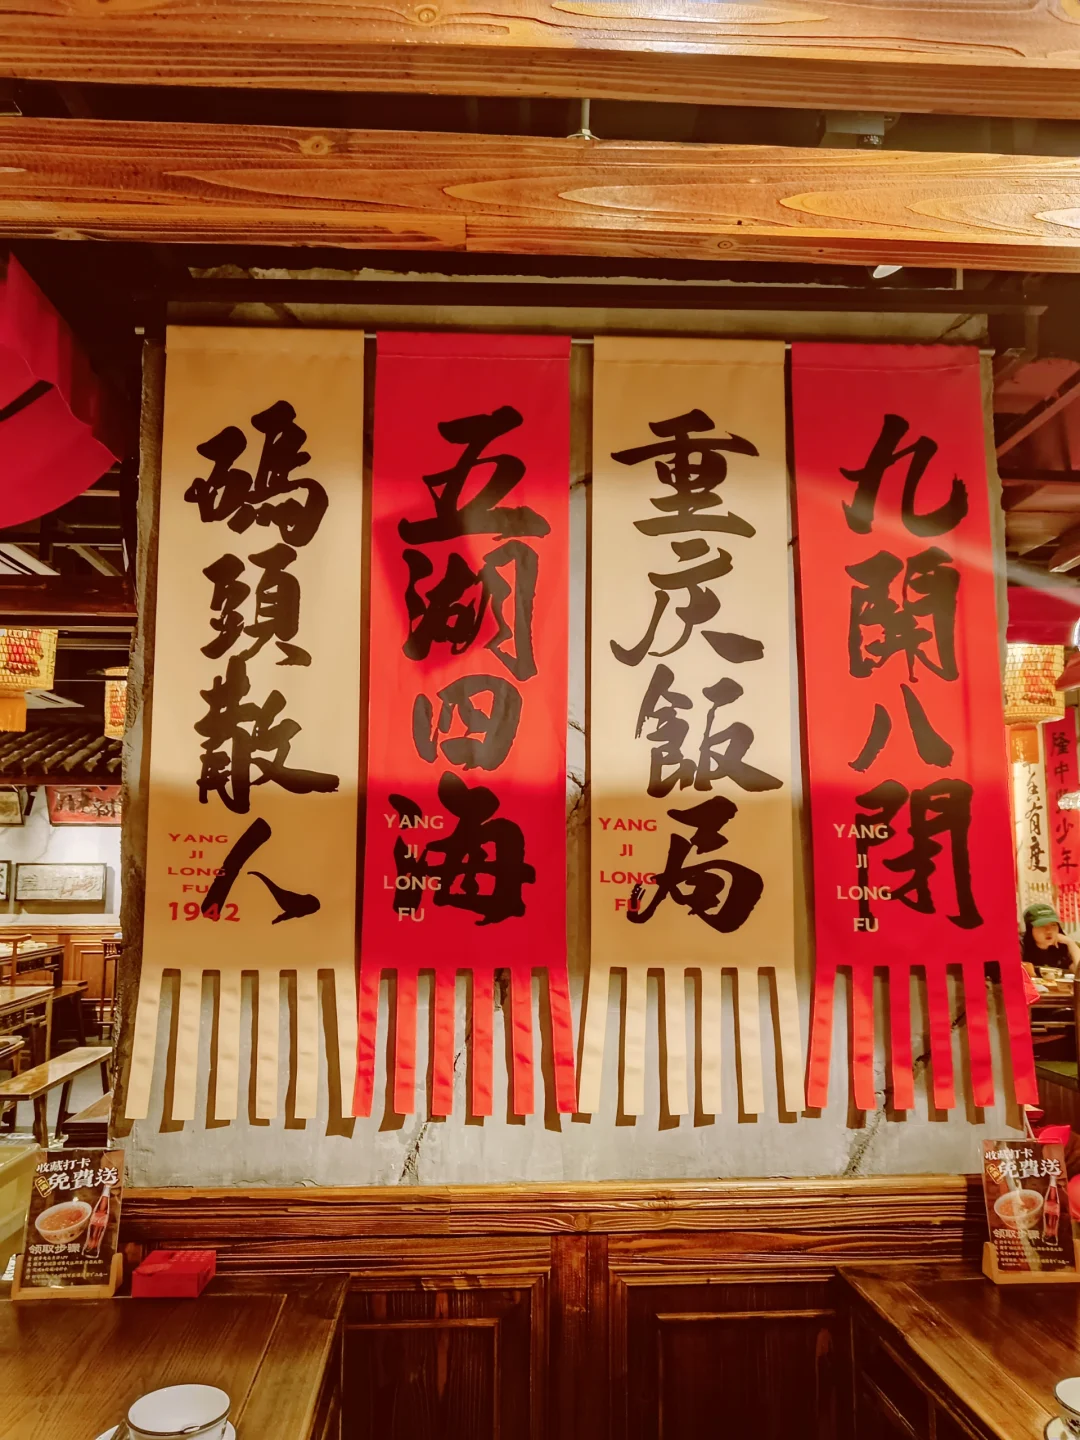 碼頭散人
YANG
JI
LONG
FU
1942
五湖四海
YANG
JI
LONG
FU
重庆飯局
YANG
JI
LONG
FU
九開八閉
YANG
JI
LONG
FU
收藏打卡
免費送
领取步驟
收藏打卡
免費送
领取步驟